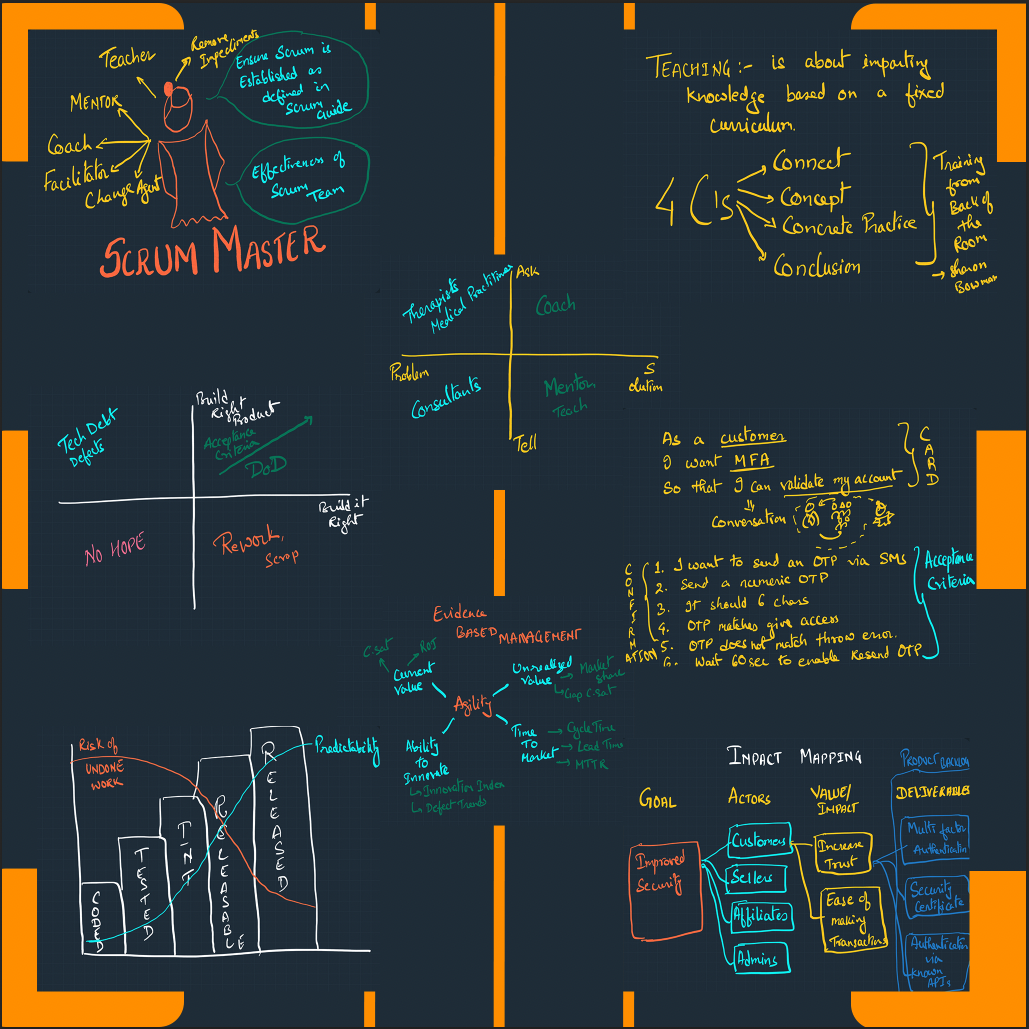 Teacher
Remove
Impediments
MENTOR
Coach
Facilitator
Change Agent
Ensure Scrum is
Established as
defined in
Scrum
Guide
Effectiveness of
Scrum
Team
SCRUM MASTER
TEACHING:- is about imparting
knowledge based on a fixed
curriculum.
4 C's
Connect
Concept
Concrete Practice
Conclusion
Training
from
Back of
the
Room
→ Sharon
Bowman
Ask
Therapists
Medical Practitines
Coach
Problem
Solution
Consultants
Mentor
Teach
Tell
Build
Right
Product
Tech Debt
Defects
Acceptance
Criteria
DoD
Build it
Right
NO HOPE
Rework,
Scrop
As a customer
I want MFA
So that I can validate my account
CARD
Conversation
CONFIRMATION
1. I want to send an OTP via SMS
2. Send a numeric OTP
3. It should 6 chars
4. OTP matches give access
5. OTP does not match throw error.
6. Wait 60sec to enable Resend OTP
Acceptance
Criteria
Evidence
BASED MANAGEMENT
C-sat
ROI
Current
Value
Unrealized
Value
→ Market
Share
Gap C-sat
Agility
Ability
to
Innovate
Innovation Index
Defect Trends
Time
To
Market
→ Cycle Time
→ Lead Time
→ MTTR
Risk of
UNDONE
WORK
Predictability
CODED
TESTED
T-INT
RELEASABLE
RELEASED
IMPACT MAPPING
GOAL
ACTORS
VALUE/
IMPACT
PRODUCT BACKLOG
DELIVERABLES
Improved
Security
Customers
Sellers
Affiliates
Admins
Increase
Trust
Ease of
making
Transactions
Multi factor
Authentication
Security
Certificate
Authentication
via
Known
APIs